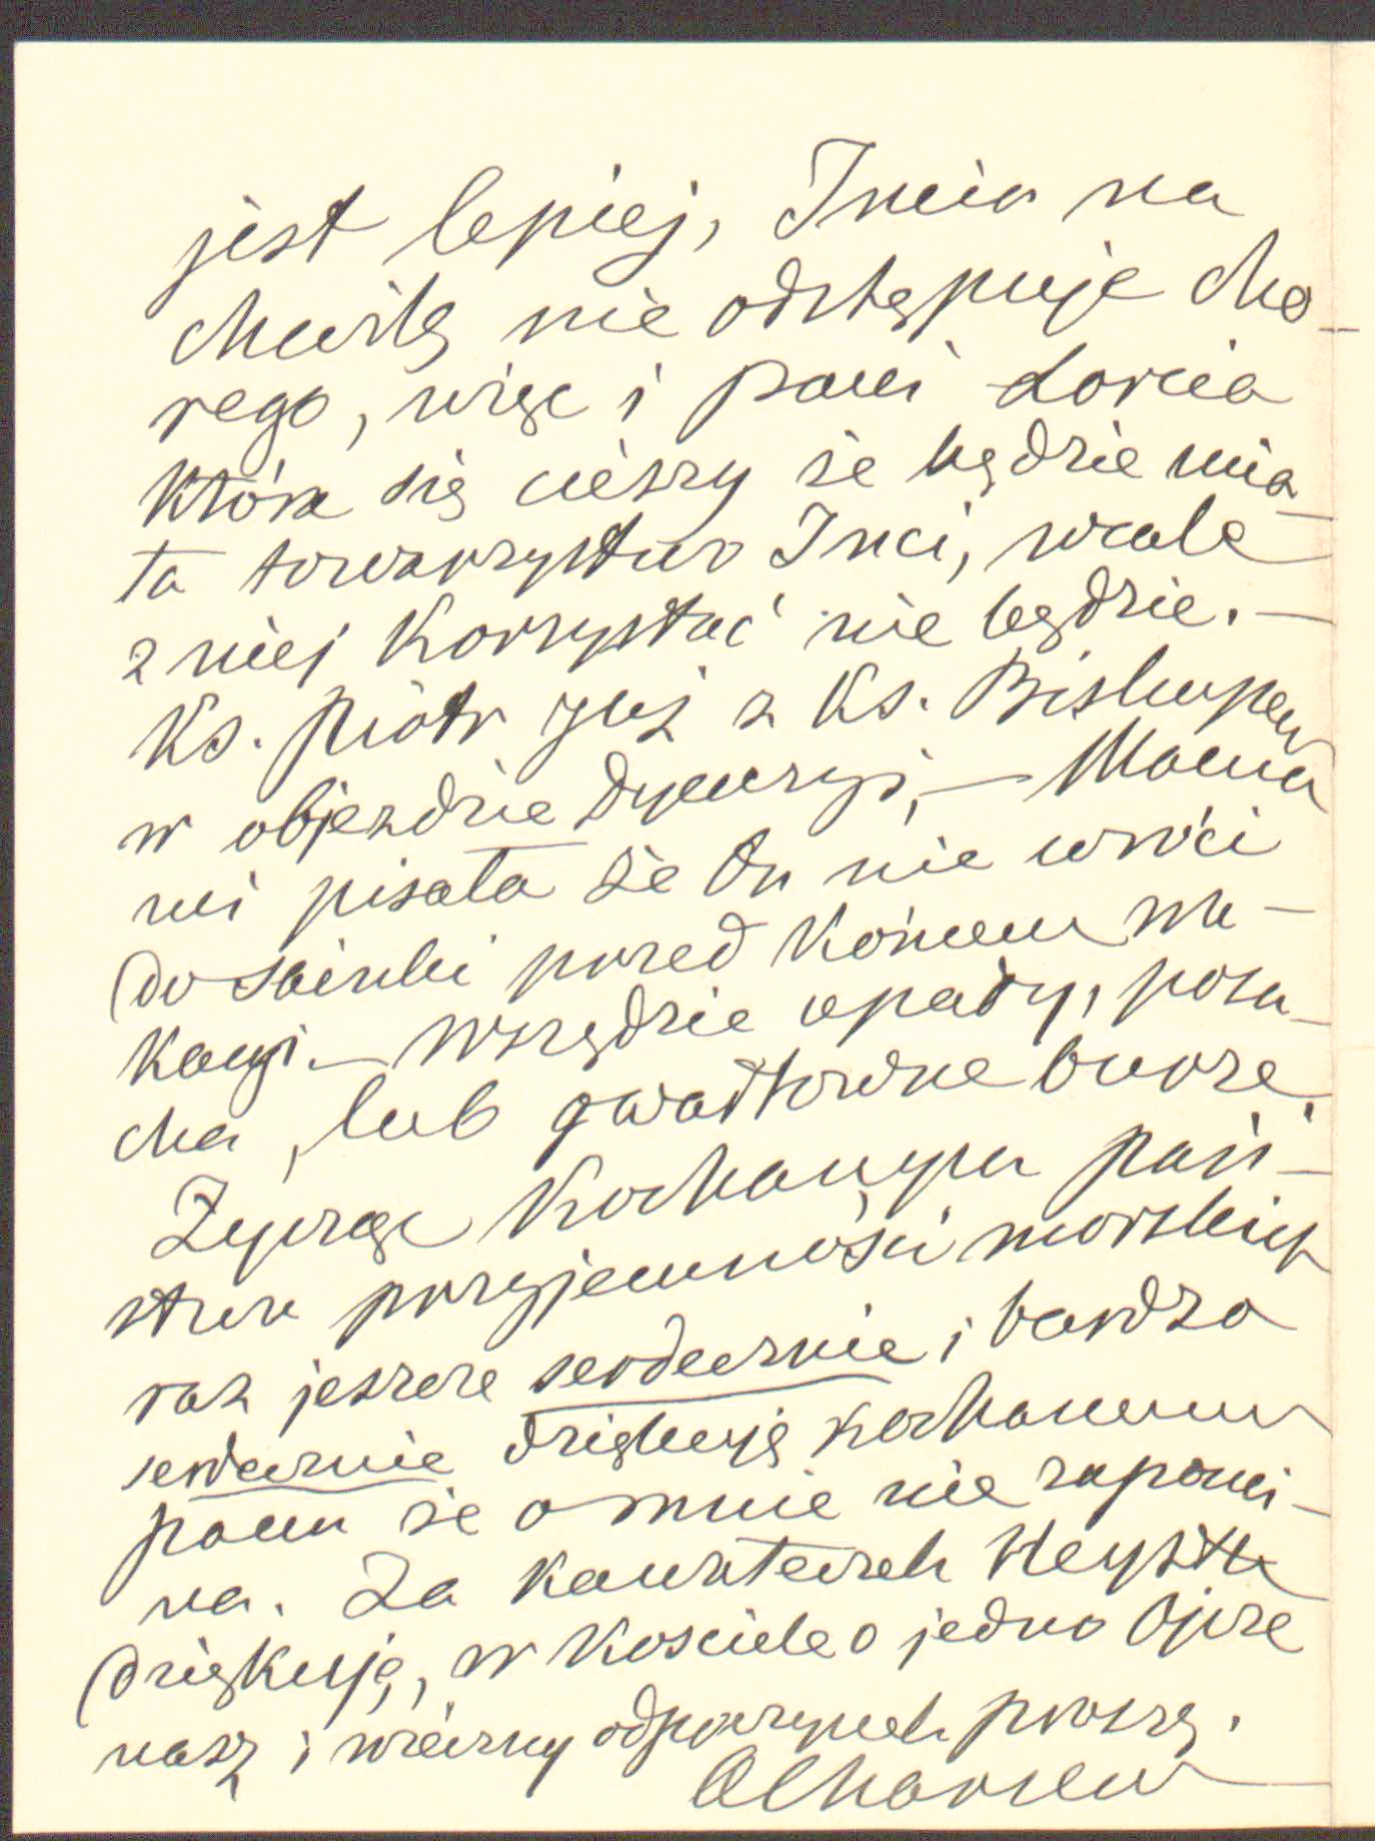 jest lepiej, Incia na
chwilę nie odstępuje cho-
rego, więc i pani Lorcia
która się cieszy że będzie mia-
ła towarzystwo Inci, wcale
z niej korzystać nie będzie. —
Ks. Piotr już z Ks. Biskupem
w objezdzie Dyecezyi, — Mama
mi pisała że On nie wróci
do przed końcem wa-
kacyi. — Wszędzie upały, posu-
cha, lub gwałtowne burze.
Życzę Kochanym Pań-
stwu przyjemności morskich
raz jeszcze serdecznie i bardzo
serdecznie dziękuję Kochanemu
panu że o mnie nie zapomi-
na. Za kawałeczek Heyst
dziękuję, w Kościele o jedno Ojcze
nasz i wieczny odpoczynek proszę.